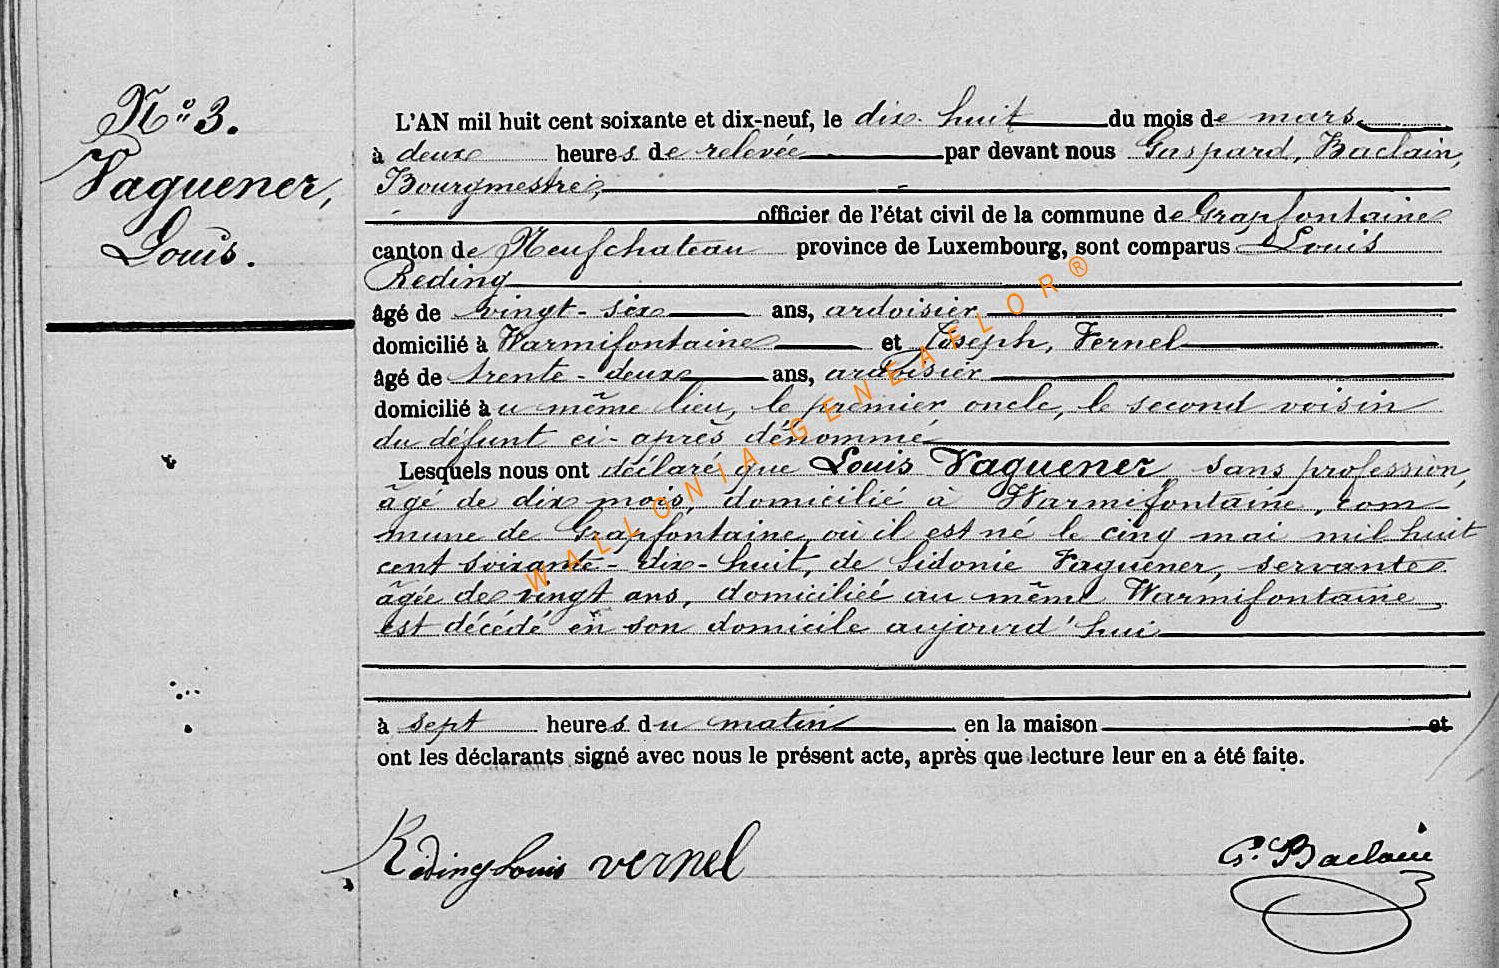 N° 3.
Vaguener,
Louis.
L'AN mil huit cent soixante et dix-neuf, le dix-huit du mois de mars
à deux heures de relevée par devant nous Gaspard, Baclain,
Bourgmestre,
officier de l'état civil de la commune de Grapfontaine
canton de Neufchateau province de Luxembourg, sont comparus Louis
Reding
âgé de vingt-six ans, ardoisier
domicilié à Warmifontaine et Joseph, Vernel
âgé de trente-deux ans, ardoisier
domicilié à u même lieu, le premier oncle, le second voisin
du défunt ci-après dénommé
Lesquels nous ont déclaré que Louis Vaguener, sans profession,
âgé de dix mois, domicilié à Warmifontaine, com-
mune de Grapfontaine, où il est né le cinq mai mil huit
cent soixante-dix-huit, de Sidonie Vaguener, servante
âgée de vingt ans, domiciliée au même Warmifontaine
est décédé en son domicile aujourd'hui
à sept heures du matin en la maison et
ont les déclarants signé avec nous le présent acte, après que lecture leur en a été faite.
Reding Louis vernel G. Baclain
WALLONIA-GENEALOR®